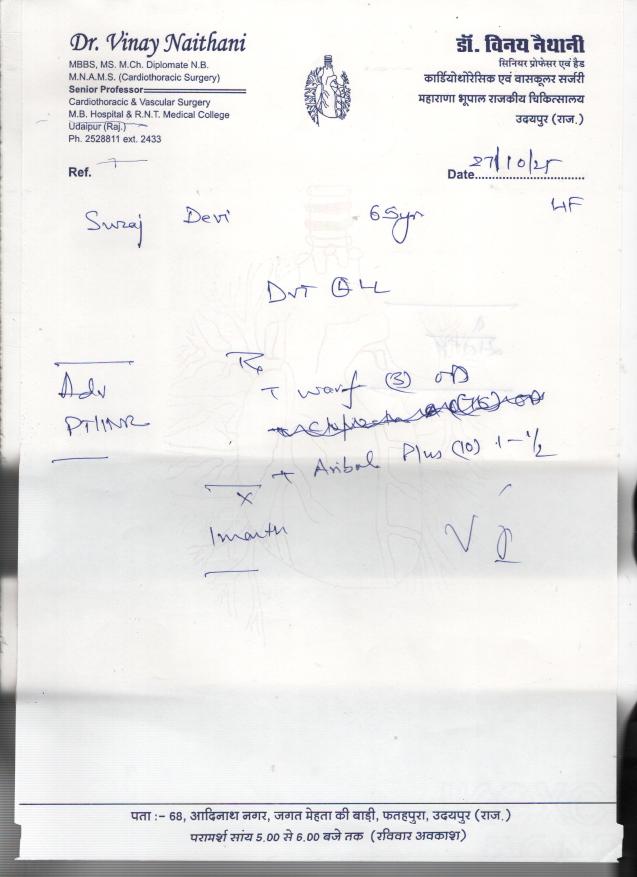 Dr. Vinay Naithani
MBBS, MS. M.Ch. Diplomate N.B.
M.N.A.M.S. (Cardiothoracic Surgery)
Senior Professor
Cardiothoracic & Vascular Surgery
M.B. Hospital & R.N.T. Medical College
Udaipur (Raj.)
Ph. 2528811 ext. 2433
डॉ. विनय नैथानी
सिनियर प्रोफेसर एवं हैड
कार्डियोथोरेसिक एवं वासकूलर सर्जरी
महाराणा भूपाल राजकीय चिकित्सालय
उदयपुर (राज.)
Ref.
Date 27/10/25
Suraj Devi 65yr
DVT L LL
Rx
Adv
PT/INR
T Warf (3) OD
T Plus (10) 1-1/2
x
1 month
पता :- 68, आदिनाथ नगर, जगत मेहता की बाड़ी, फतहपुरा, उदयपुर (राज.)
परामर्श सांय 5.00 से 6.00 बजे तक (रविवार अवकाश)